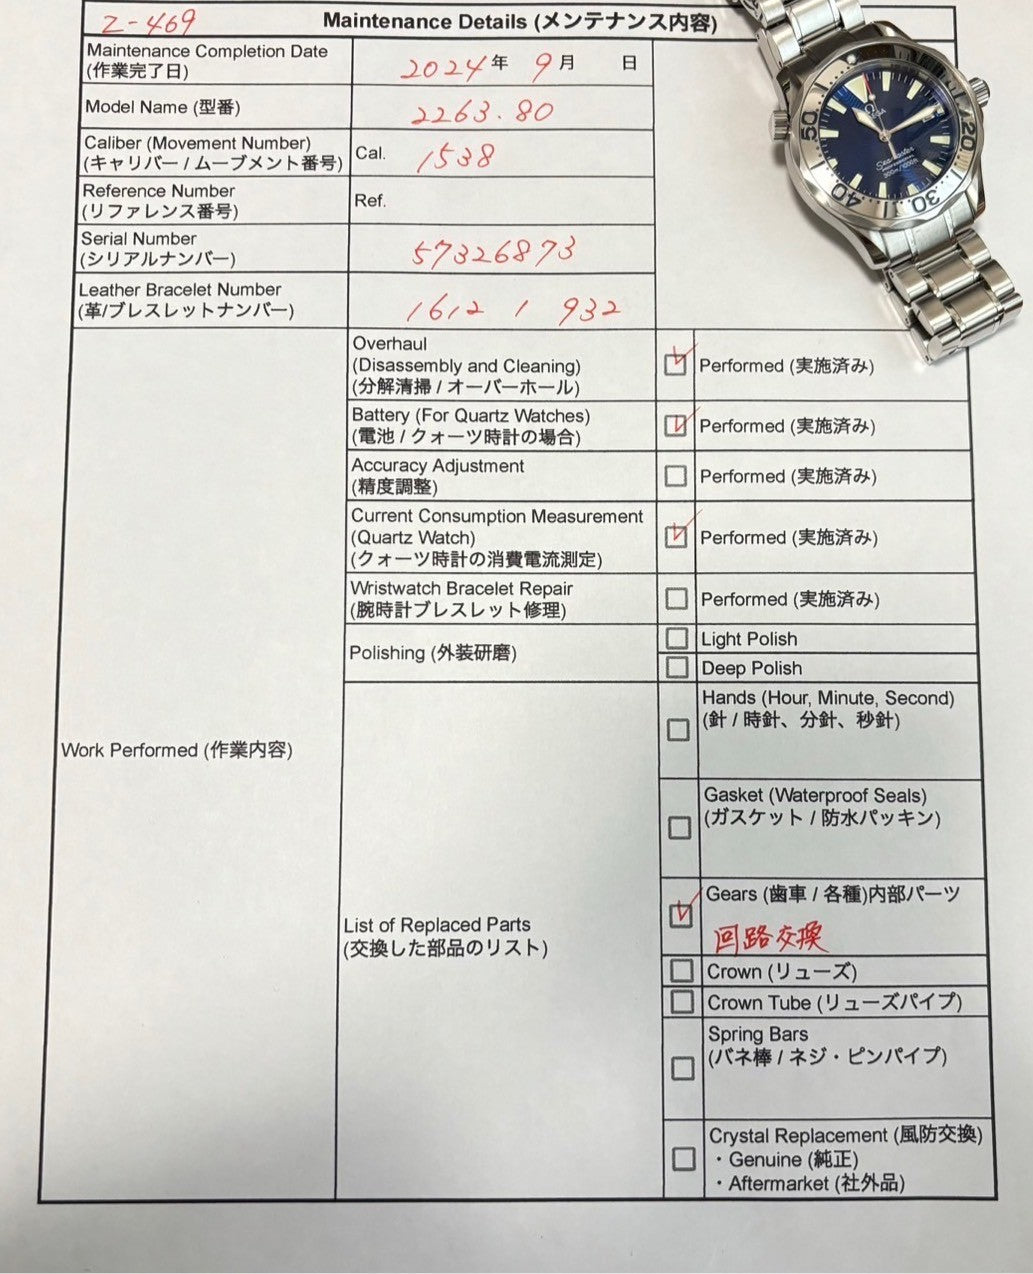 Z-469
Maintenance Details (メンテナンス内容)
Maintenance Completion Date
(作業完了日)
2024年 9月 日
Model Name (型番)
2263.80
Caliber (Movement Number)
(キャリバー / ムーブメント番号)
Cal. 1538
Reference Number
(リファレンス番号)
Ref.
Serial Number
(シリアルナンバー)
57326873
Leather Bracelet Number
(革/ブレスレットナンバー)
1612 1 932
Work Performed (作業内容)
Overhaul
(Disassembly and Cleaning)
(分解清掃 / オーバーホール)
Performed (実施済み)
Battery (For Quartz Watches)
(電池 / クォーツ時計の場合)
Performed (実施済み)
Accuracy Adjustment
(精度調整)
Performed (実施済み)
Current Consumption Measurement
(Quartz Watch)
(クォーツ時計の消費電流測定)
Performed (実施済み)
Wristwatch Bracelet Repair
(腕時計ブレスレット修理)
Performed (実施済み)
Polishing (外装研磨)
Light Polish
Deep Polish
List of Replaced Parts
(交換した部品のリスト)
Hands (Hour, Minute, Second)
(針 / 時針、分針、秒針)
Gasket (Waterproof Seals)
(ガスケット / 防水パッキン)
Gears (歯車 / 各種)内部パーツ
回路交換
Crown (リューズ)
Crown Tube (リューズパイプ)
Spring Bars
(バネ棒 / ネジ・ピンパイプ)
Crystal Replacement (風防交換)
・Genuine (純正)
・Aftermarket (社外品)
Seamaster
300m/1000ft
20
30
40
50